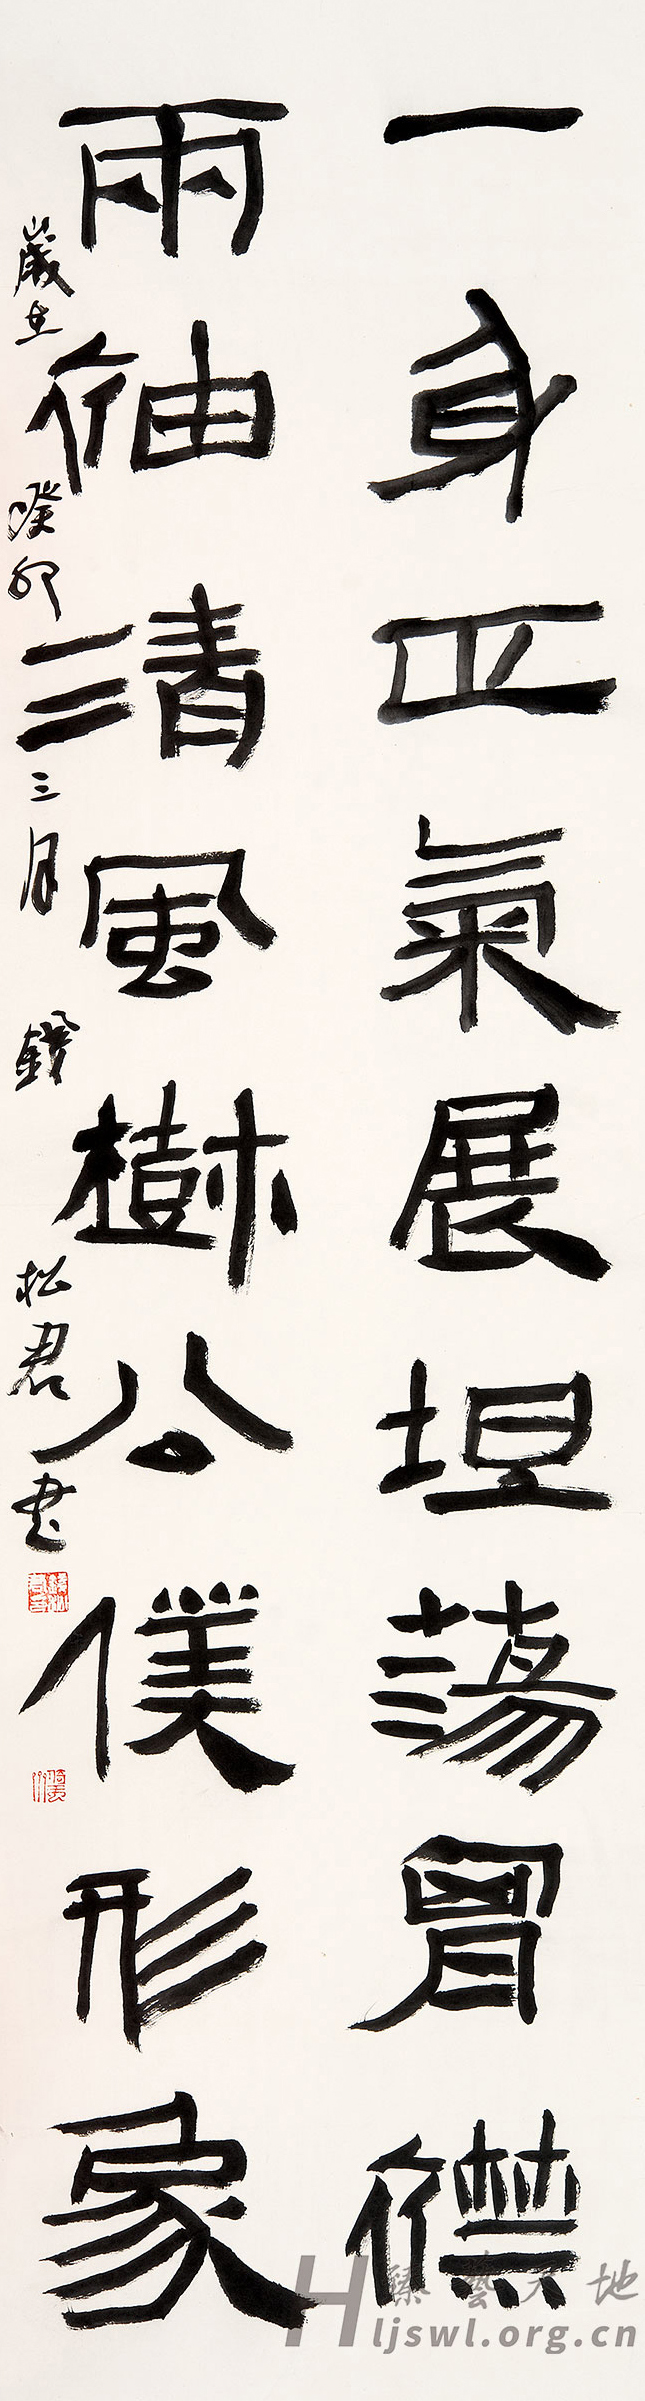 一身正氣展坦蕩胷襟
兩袖清風樹公僕形象
歲在癸卯三月 錢松君書
臻藝天地
Hljswl.org.cn